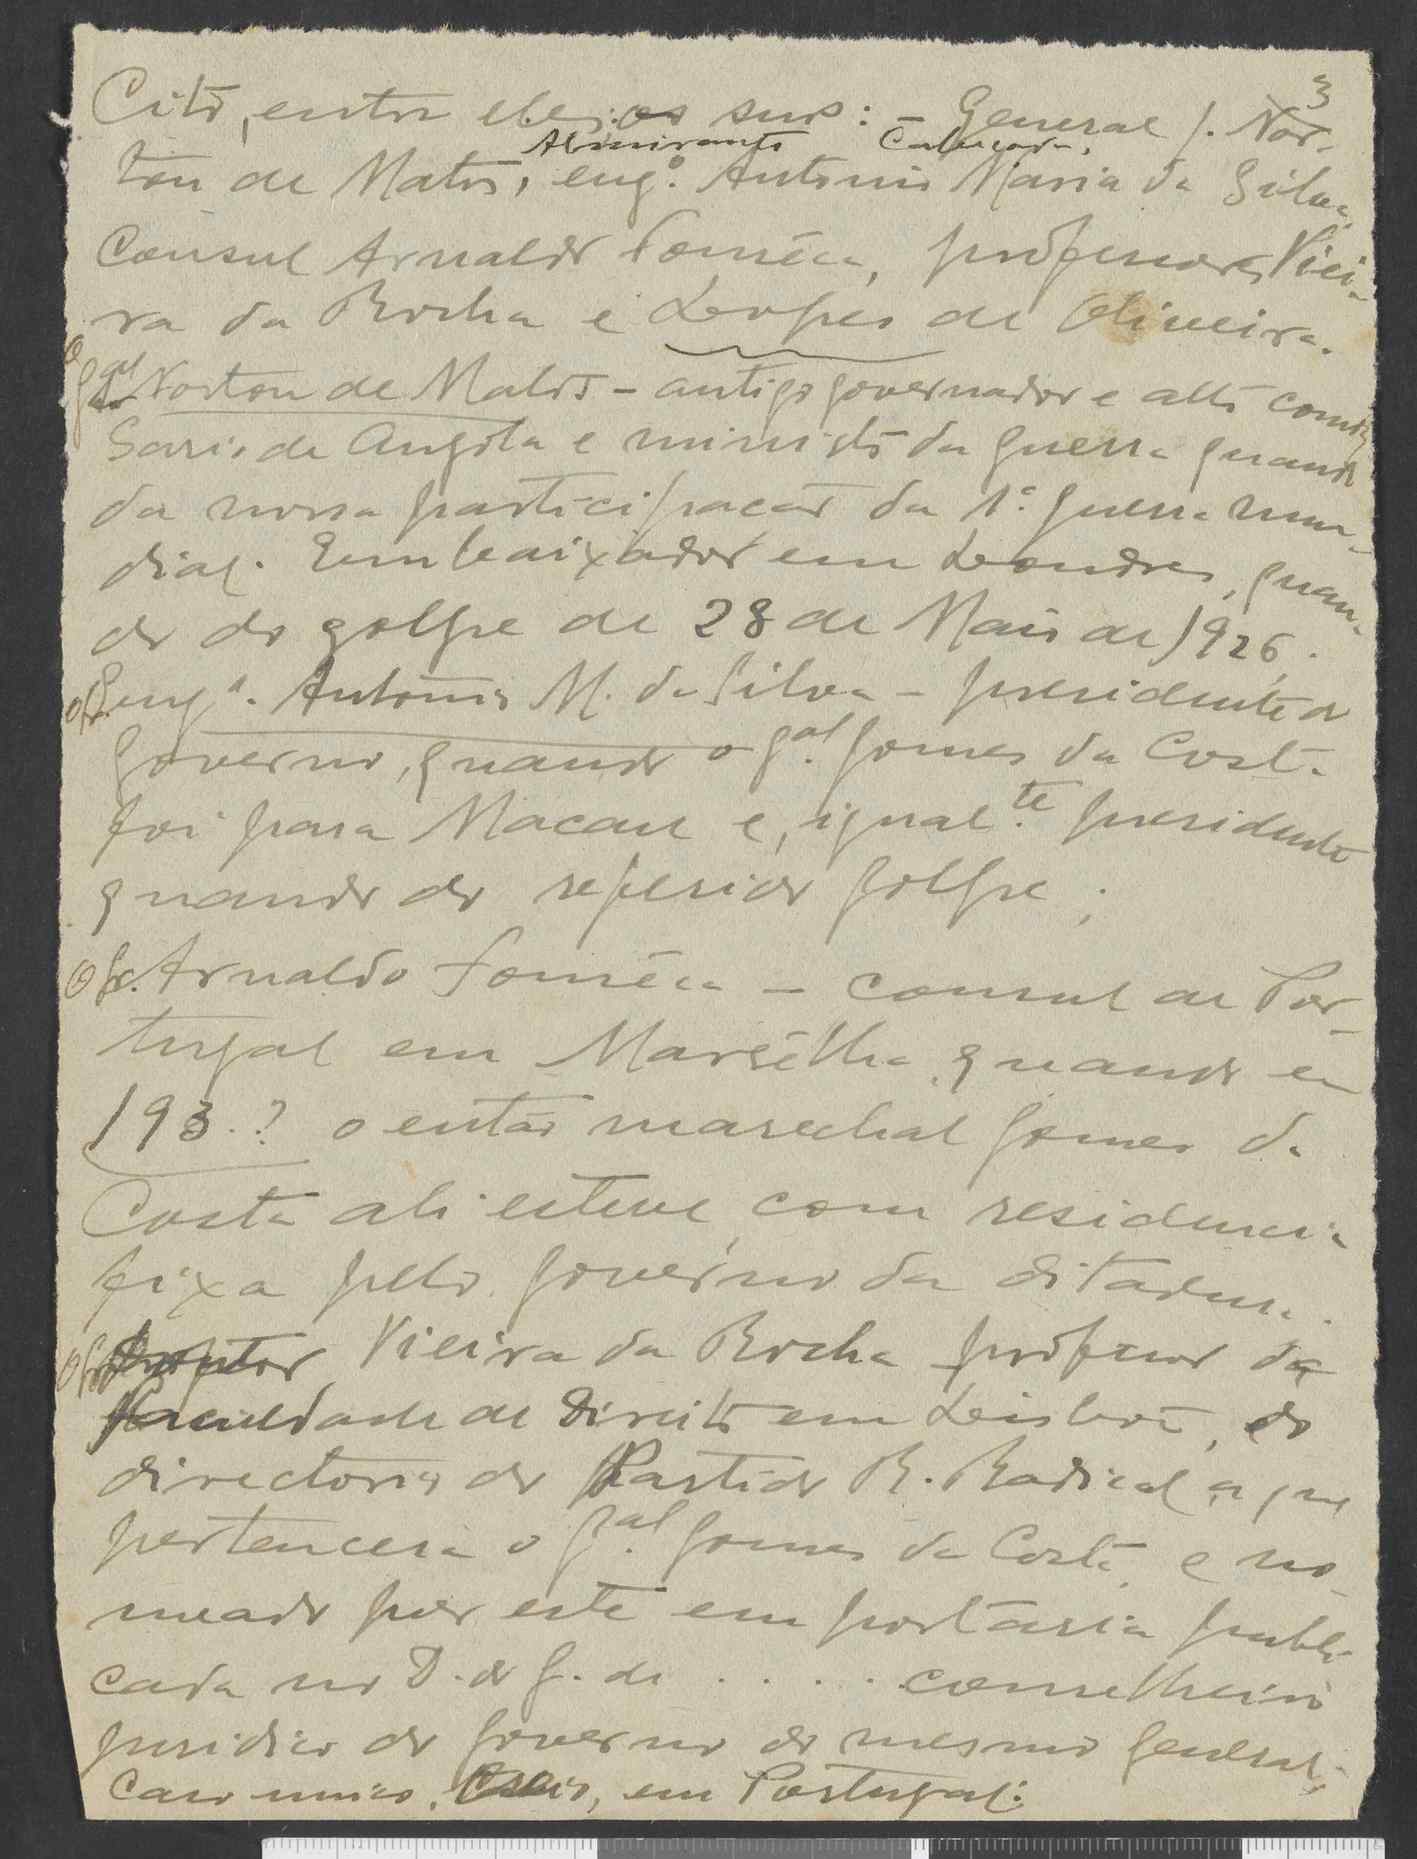 3
Citó, entre eles, os surs: – General J. Nor-
Almirante Cabeçadas,
ton de Matos, eng.º Antonio Maria da Silva,
Consul Arnaldo Fonsêca, professores Viei-
ra da Rocha e Lopes de Oliveira.
O Gal Norton de Matos – antigo governador e alto comis
sario de Angola e ministro da guerra quando
da nossa participação da 1.ª guerra mun-
dial. Embaixador em Londres, quan-
do do golpe de 28 de Maio de 1926.
O Sr. Engº. Antonio M. da Silva – presidente do
Governo, quando o gal. Gomes da Costa
foi para Macau e, igual.te presidente
quando do referido golpe;
O Sr. Arnaldo Fonsêca – consul de Por-
tugal em Marsêlha, quando em
193.? o então marechal Gomes da
Costa ali esteve, com residencia
fixa pelo govêrno da ditadura.
O Sr. Doutor Vieira da Rocha professor da
Faculdade de Direito em Lisboa, do
directorio do Partido R. Radical a que
pertencera o gal. Gomes da Costa, e no-
meado por este em portaria publi
cada no D. do G. de . . . . . conselheiro
juridico do governo do mesmo general;
caso unico, em Portugal.